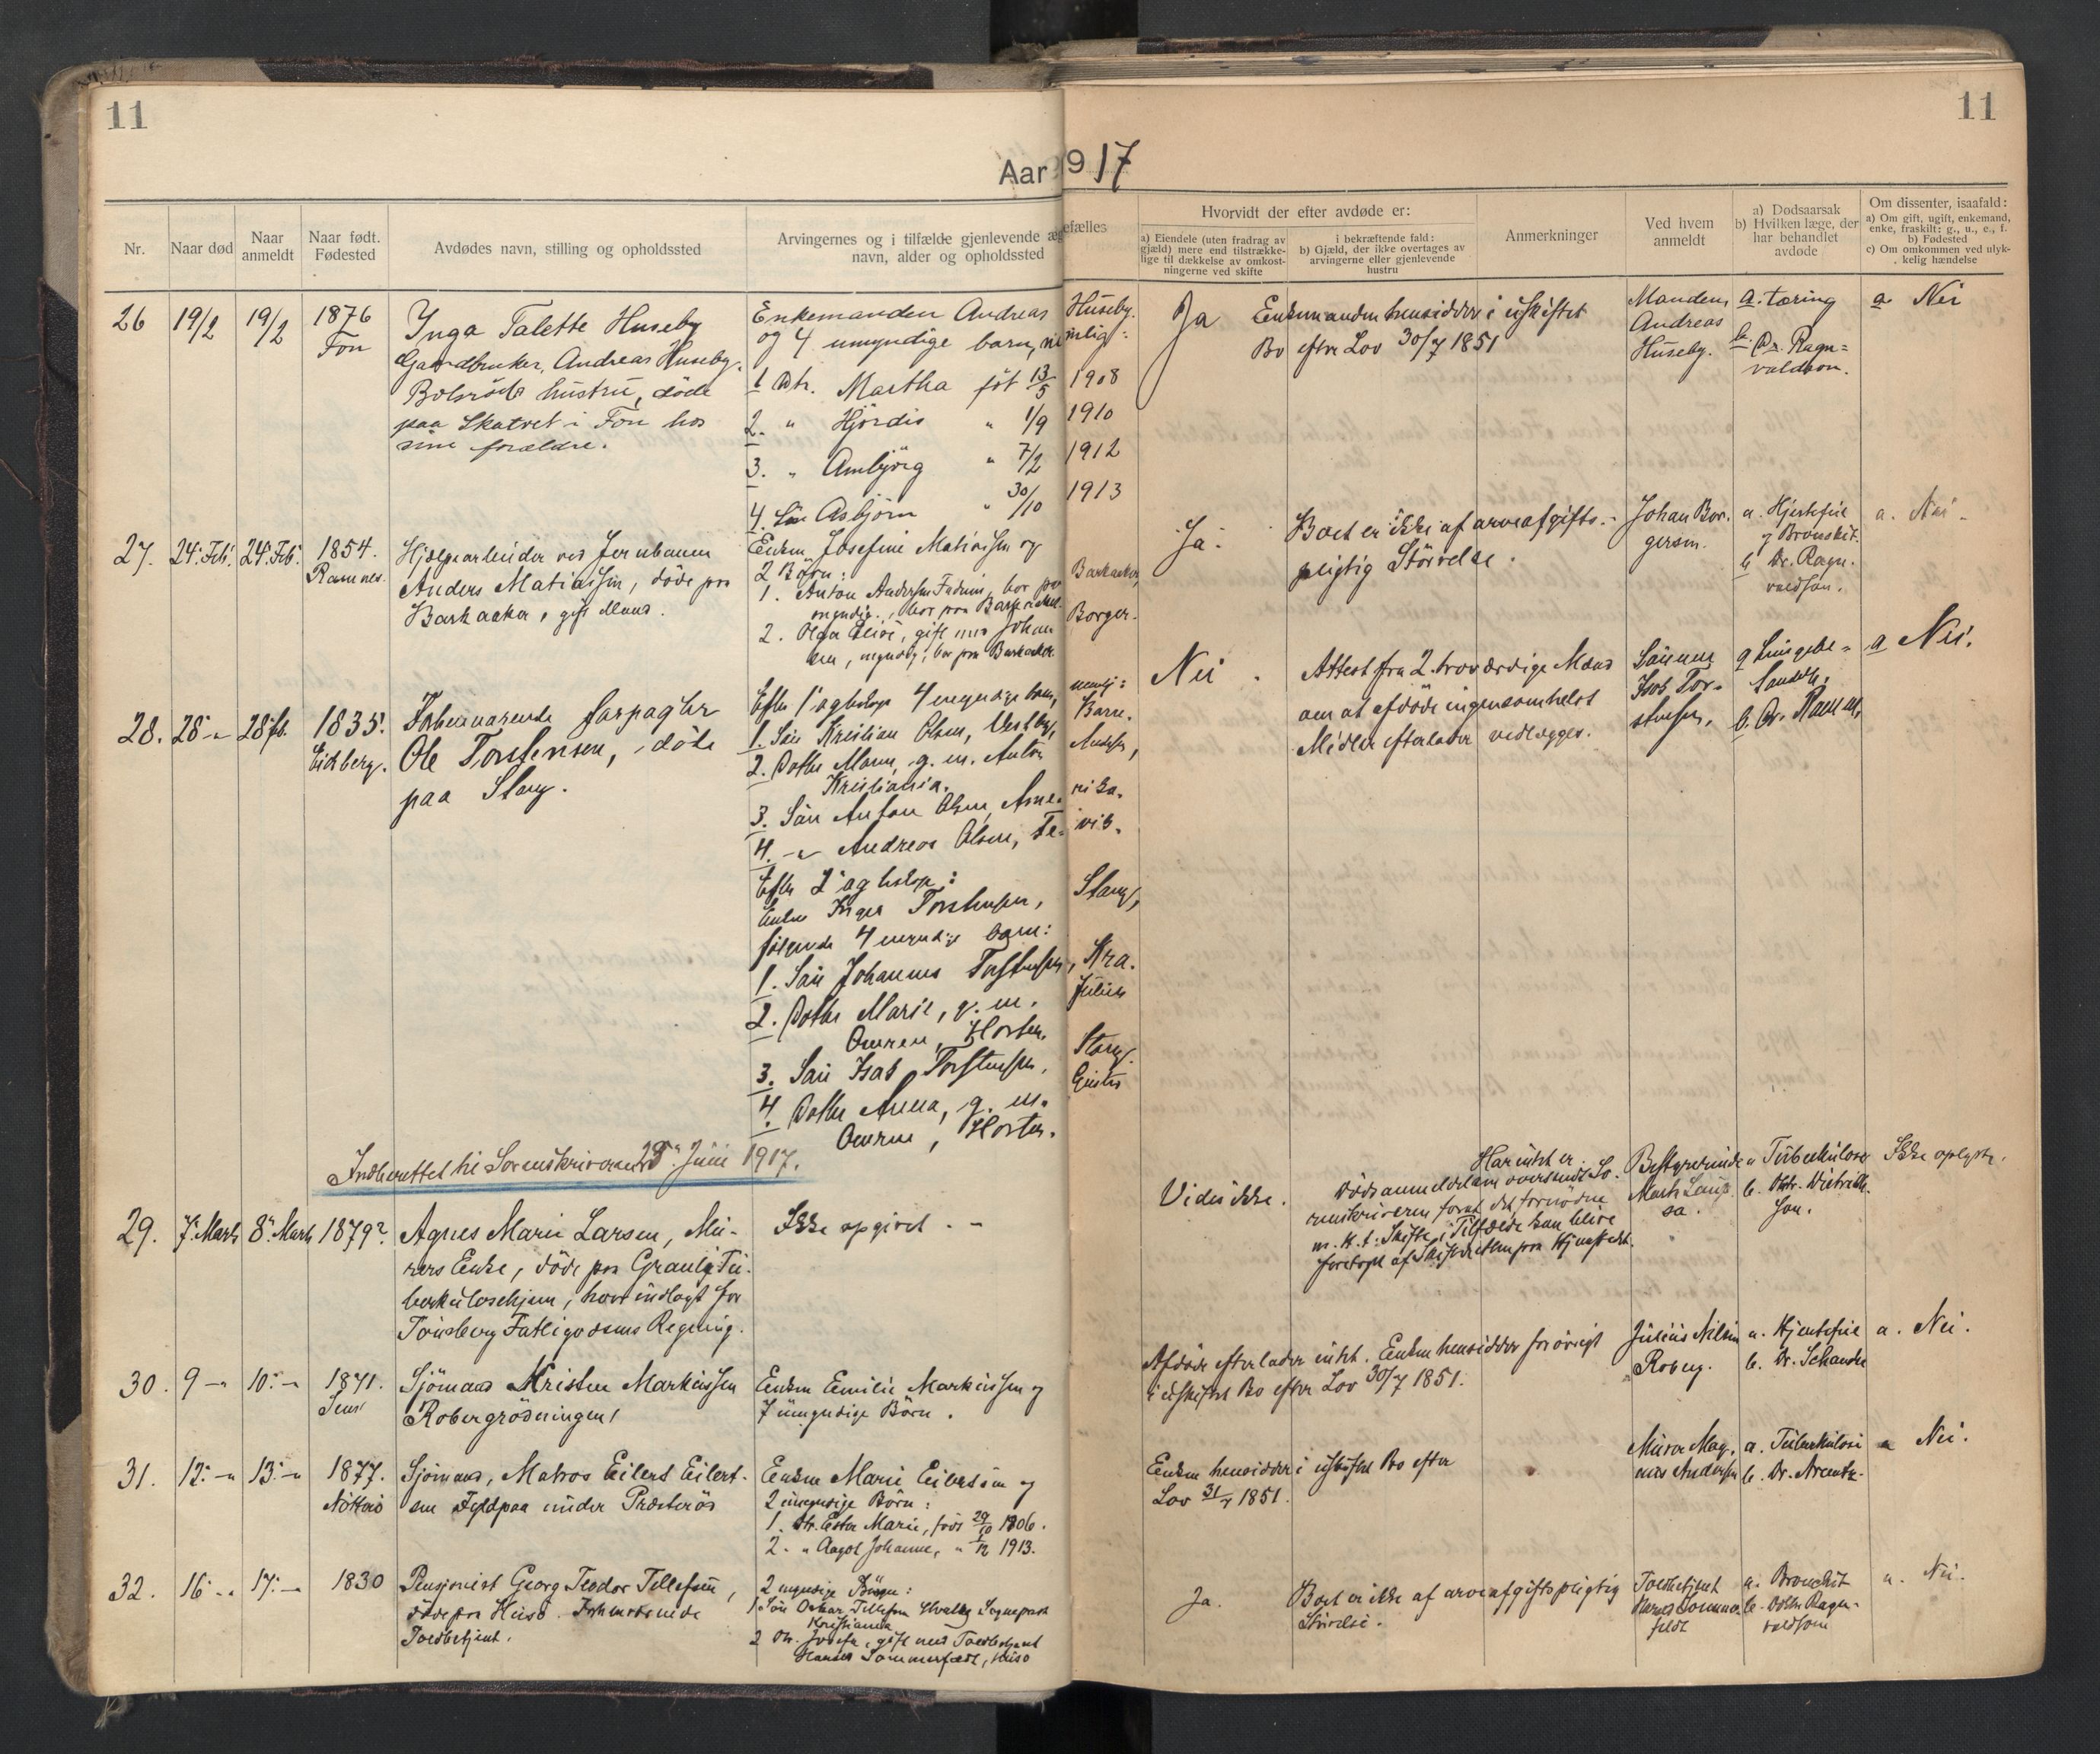 11
11
Aar 1917
Nr.
Naar død
Naar anmeldt
Naar født. Fødested
Avdødes navn, stilling og opholdssted
Arvingernes og i tilfælde gjenlevende æg efælles
navn, alder og opholdssted
Hvorvidt der efter avdøde er:
a) Eiendele (uten fradrag av gjæld) mere end tilstrække-lige til dækkelse av omkost-ningerne ved skifte
i bekræftende fald: b) Gjæld, der ikke overtages av arvingerne eller gjenlevende hustru
Anmerkninger
Ved hvem anmeldt
a) Dødsaarsak b) Hvilken læge, der har behandlet avdøde
Om dissenter, isaafald: a) Om gift, ugift, enkemand, enke, fraskilt: g., u., e., f. b) Fødested c) Om omkommen ved ulyk-kelig hændelse
26 19/2 19/2 1876
Fon
Inga Talette Huseby
Gaardbruker, Andreas Huseby,
hustru, døde
paa Skatvet i Fon hos
sine forældre.
Enkemanden Andreas Huseby.
og 4 umyndige barn, nemlig:
1 Dtr. Martha føt 13/5 1908
2. " Hjördis " 1/9 1910
3. " " 7/2 1912
4. Søn Asbjörn " 30/10 1913
Ja
Enkemanden hensidder i uskiftet
Bo efter Lov 30/7 1851
Manden
Andreas
Huseby.
a. tæring
b. Dr. Ragn=
valdson.
a Nei
27. 24. Feb. 24. Feb. 1854.
Ramnes.
Hjælpearbeider ved Jernbanen
Anders Matiassen, døde paa
Barkaaker, gift Mand.
Enken Josefine Matiassen og
2 Børn:
1. Anton Andersen
myndig, bor paa Barkaaker,
2. Olga Elise, gift med Johan Borger-
sen, myndig, bor paa Barkaaker.
Ja.
Boet er ikke af arveafgifts-
pligtig Størrelse.
Johan Bor-
gersen.
a. Hjertefeil
og Bronchit.
b. Dr. Ragn-
valdson.
a. Nei.
28. 28. " 28 fb. 1835.
Eidsberg.
Forhenværende
Ole Torstensen, døde
paa Stang.
Efter 1' 4 myndige barn, nemlig:
1. Søn Kristian Olsen, Vestby, Barn.
2. Datter g. m. Anton
Kristiania.
3. Søn Anton Olsen, Amerika.
4. " Andreas Olsen,
Efter 2'
Enken Inger Torstensen, Stang,
følgende 4 myndige barn:
1. Søn Johannes Torstensen, Kra.
2. Datter Marie, g. m. Julius
Horten.
3. Søn Isak Torstensen, Stang.
4. Datter Anna, g. m.
Horten.
Nei.
Attest fra 2 troværdige Mænd
om at afdøde ingensomhelst
Midler efterlader vedlægges.
Sønnen
Isak Tor-
stensen.
a Lungebe=
tændelse.
b. Dr.
a Nei.
Indberettet til Sorenskriveren Juni 1917.
29. 7. Marts 8. Marts 1879?
Agnes Marie Larsen, Mu-
rers Enke, døde paa Granli Tu-
berkulosehjem, hvor indlagt for
Tønsberg Fattigvæsens Regning.
Ikke opgivet. -
Vides ikke.
Har intet er.
Dødsanmeldelsen oversendt So-
renskriveren forat det fornødne
m. H. t. Skifte i Tilfælde kan blive
foretaget af Skifteretten paa Hjemstedet.
Bestyrerinde
a Tuberkulose
b. Dtr.
Ikke oplyst.
30. 9 - " 10. - " 1871.
Sem
Sjømand Kristen Markussen
Robergrødningen
Enken Emilie Markussen og
7 umyndige Børn.
Afdøde efterlader intet. Enken hensidder forøvrigt
i uskiftet Bo efter Lov 30/7 1851.
Julius Nilsen
Roberg.
a. Hjertefeil
b. Dr. Schanche
a. Nei.
31. 12. - " 13. - " 1877.
Nøtterø
Sjømand, Matros Eilert Eilert-
sen
Enken Marie Eilertsen og
2 umyndige Børn:
1. Dtr. Ester Marie, født 29/10 1906.
2. " Aagot Johanne, " 1/12 1913.
Enken hensidder i uskiftet Bo efter
Lov 31/7 1851.
Murer Mag-
nus Andersen
a. Tuberkulose
b. Dr. Arentz.
a Nei.
32. 16. " 17. - " 1830
Pensjonist Georg Teodor Tellefsen,
døde paa Husø. Forhenværende
Toldbetjent.
2 myndige Børn:
1 Søn Oskar Tellefsen Sogneprest
Kristiania
2 Dtr. Josefa, gift med Toldbetjent
Sommerfeldt, Husø
Ja.
Boet er ikke af arveafgiftspligtig
Størrelse.
Toldbetjent
Sommer-
feldt
a. Bronchit
b. Dokter Ragn-
valdson
a. Nei.